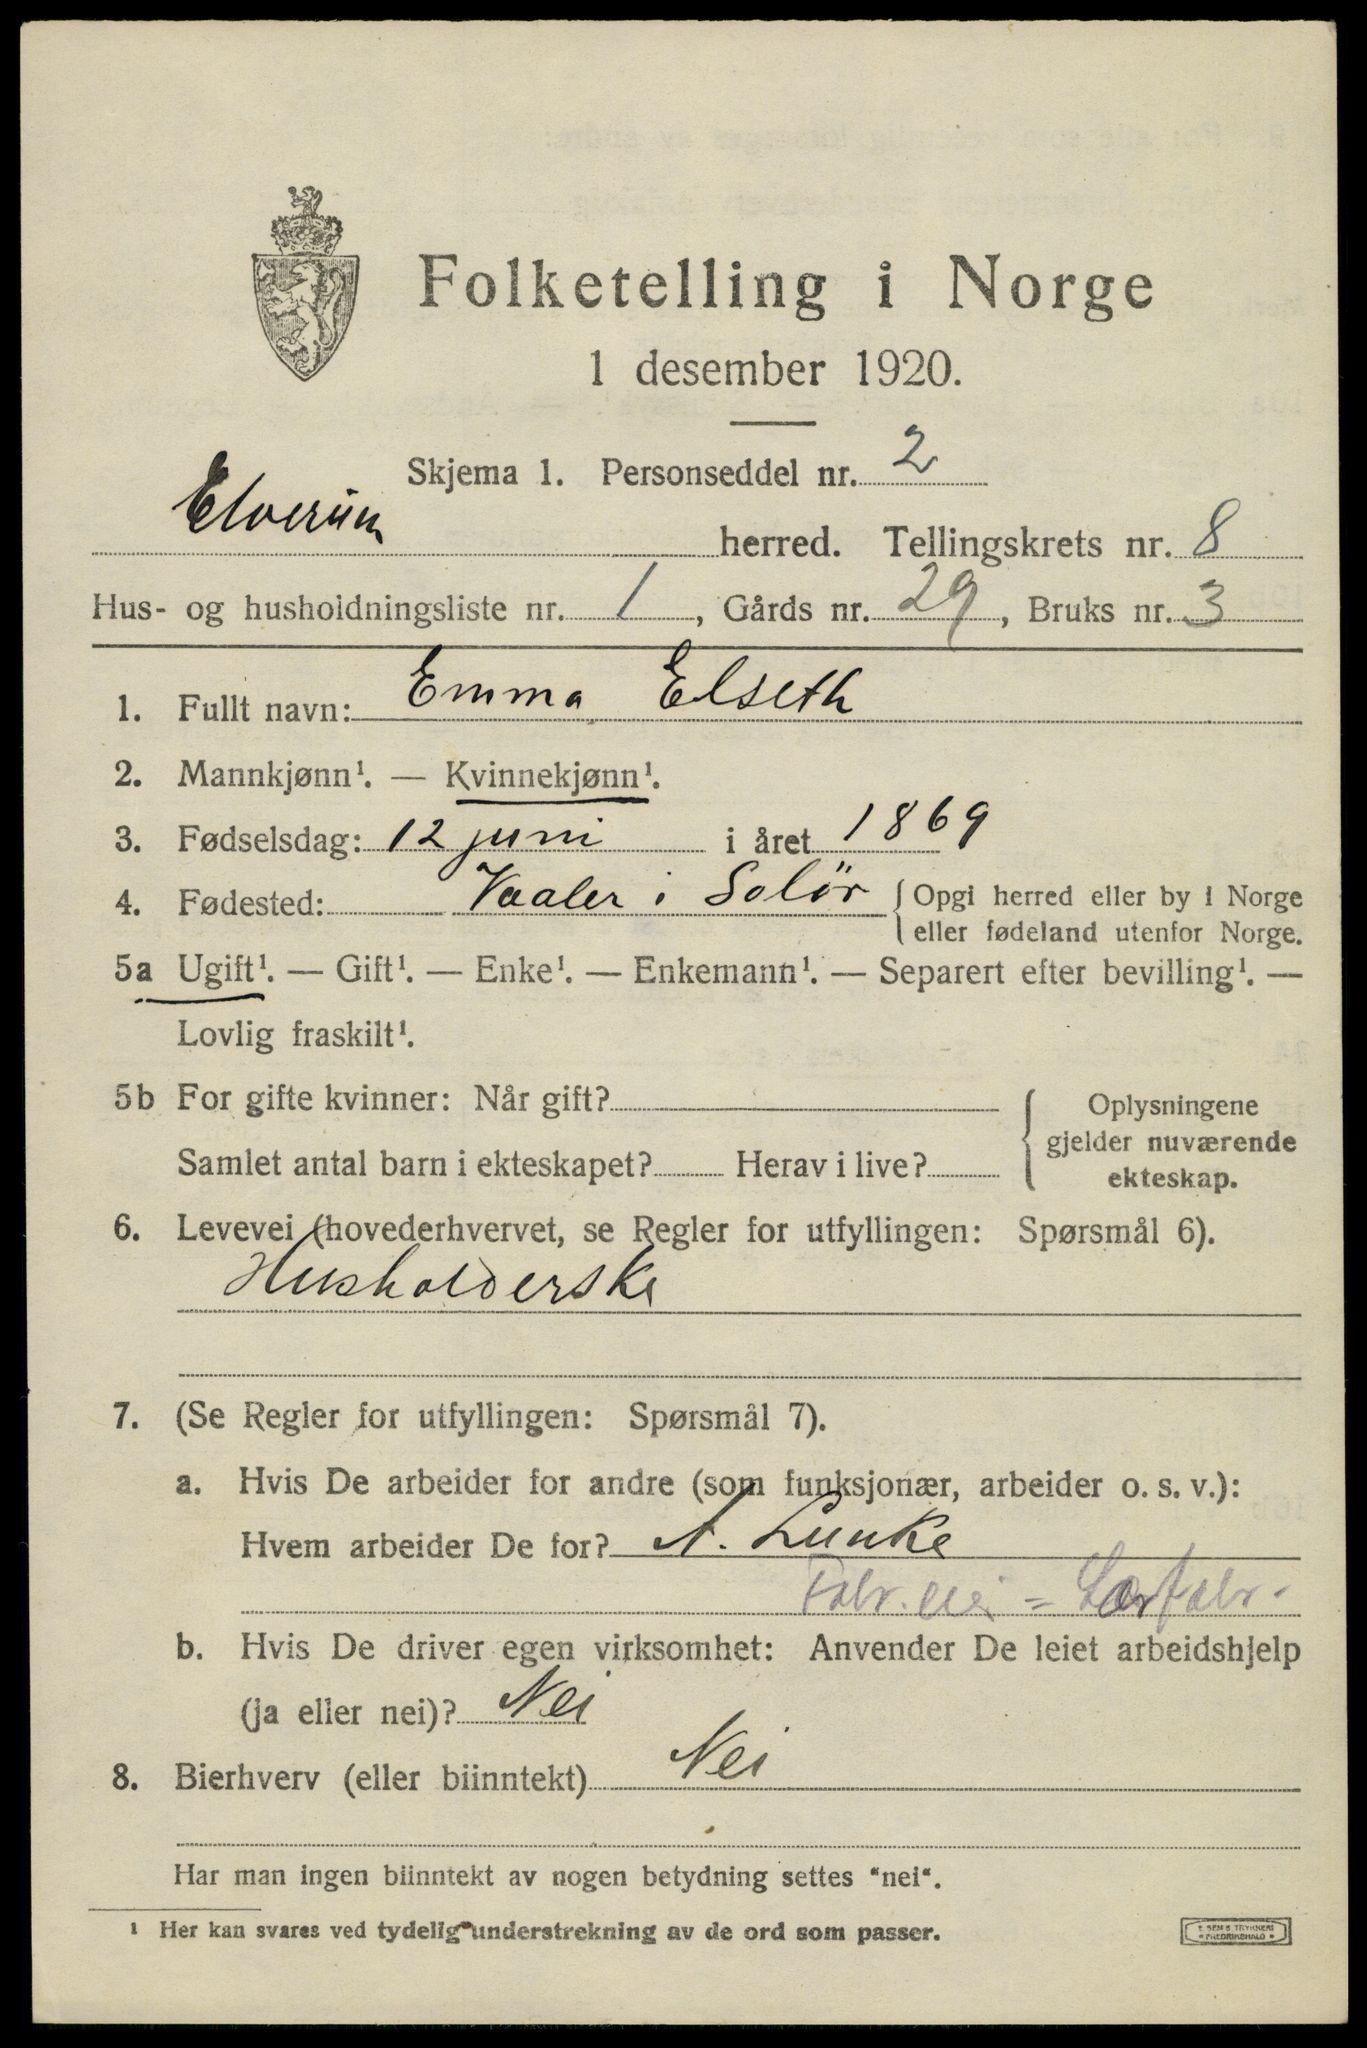 Folketelling i Norge
1 desember 1920.
Skjema 1. Personseddel nr. 2
Elverum herred. Tellingskrets nr. 8
Hus- og husholdningsliste nr. 1, Gårds nr. 29, Bruks nr. 3
1. Fullt navn: Emma Elseth
2. Mannkjønn¹. — Kvinnekjønn¹.
3. Fødselsdag: 12 juni i året 1869
4. Fødested: Vaaler i Solör { Opgi herred eller by i Norge
eller fødeland utenfor Norge.
5a Ugift¹. — Gift¹. — Enke¹. — Enkemann¹. — Separert efter bevilling¹. —
Lovlig fraskilt¹.
5b For gifte kvinner: Når gift?
Samlet antal barn i ekteskapet? Herav i live?
{ Oplysningene
gjelder nuværende
ekteskap.
6. Levevei (hovederhvervet, se Regler for utfyllingen: Spørsmål 6).
Husholderske
7. (Se Regler for utfyllingen: Spørsmål 7).
a. Hvis De arbeider for andre (som funksjonær, arbeider o. s. v.):
Hvem arbeider De for? A. Lunke
Fabr. eier = Lærfabr.
b. Hvis De driver egen virksomhet: Anvender De leiet arbeidshjelp
(ja eller nei)? Nei
8. Bierhverv (eller biinntekt) Nei
Har man ingen biinntekt av nogen betydning settes "nei".
¹ Her kan svares ved tydelig understrekning av de ord som passer.